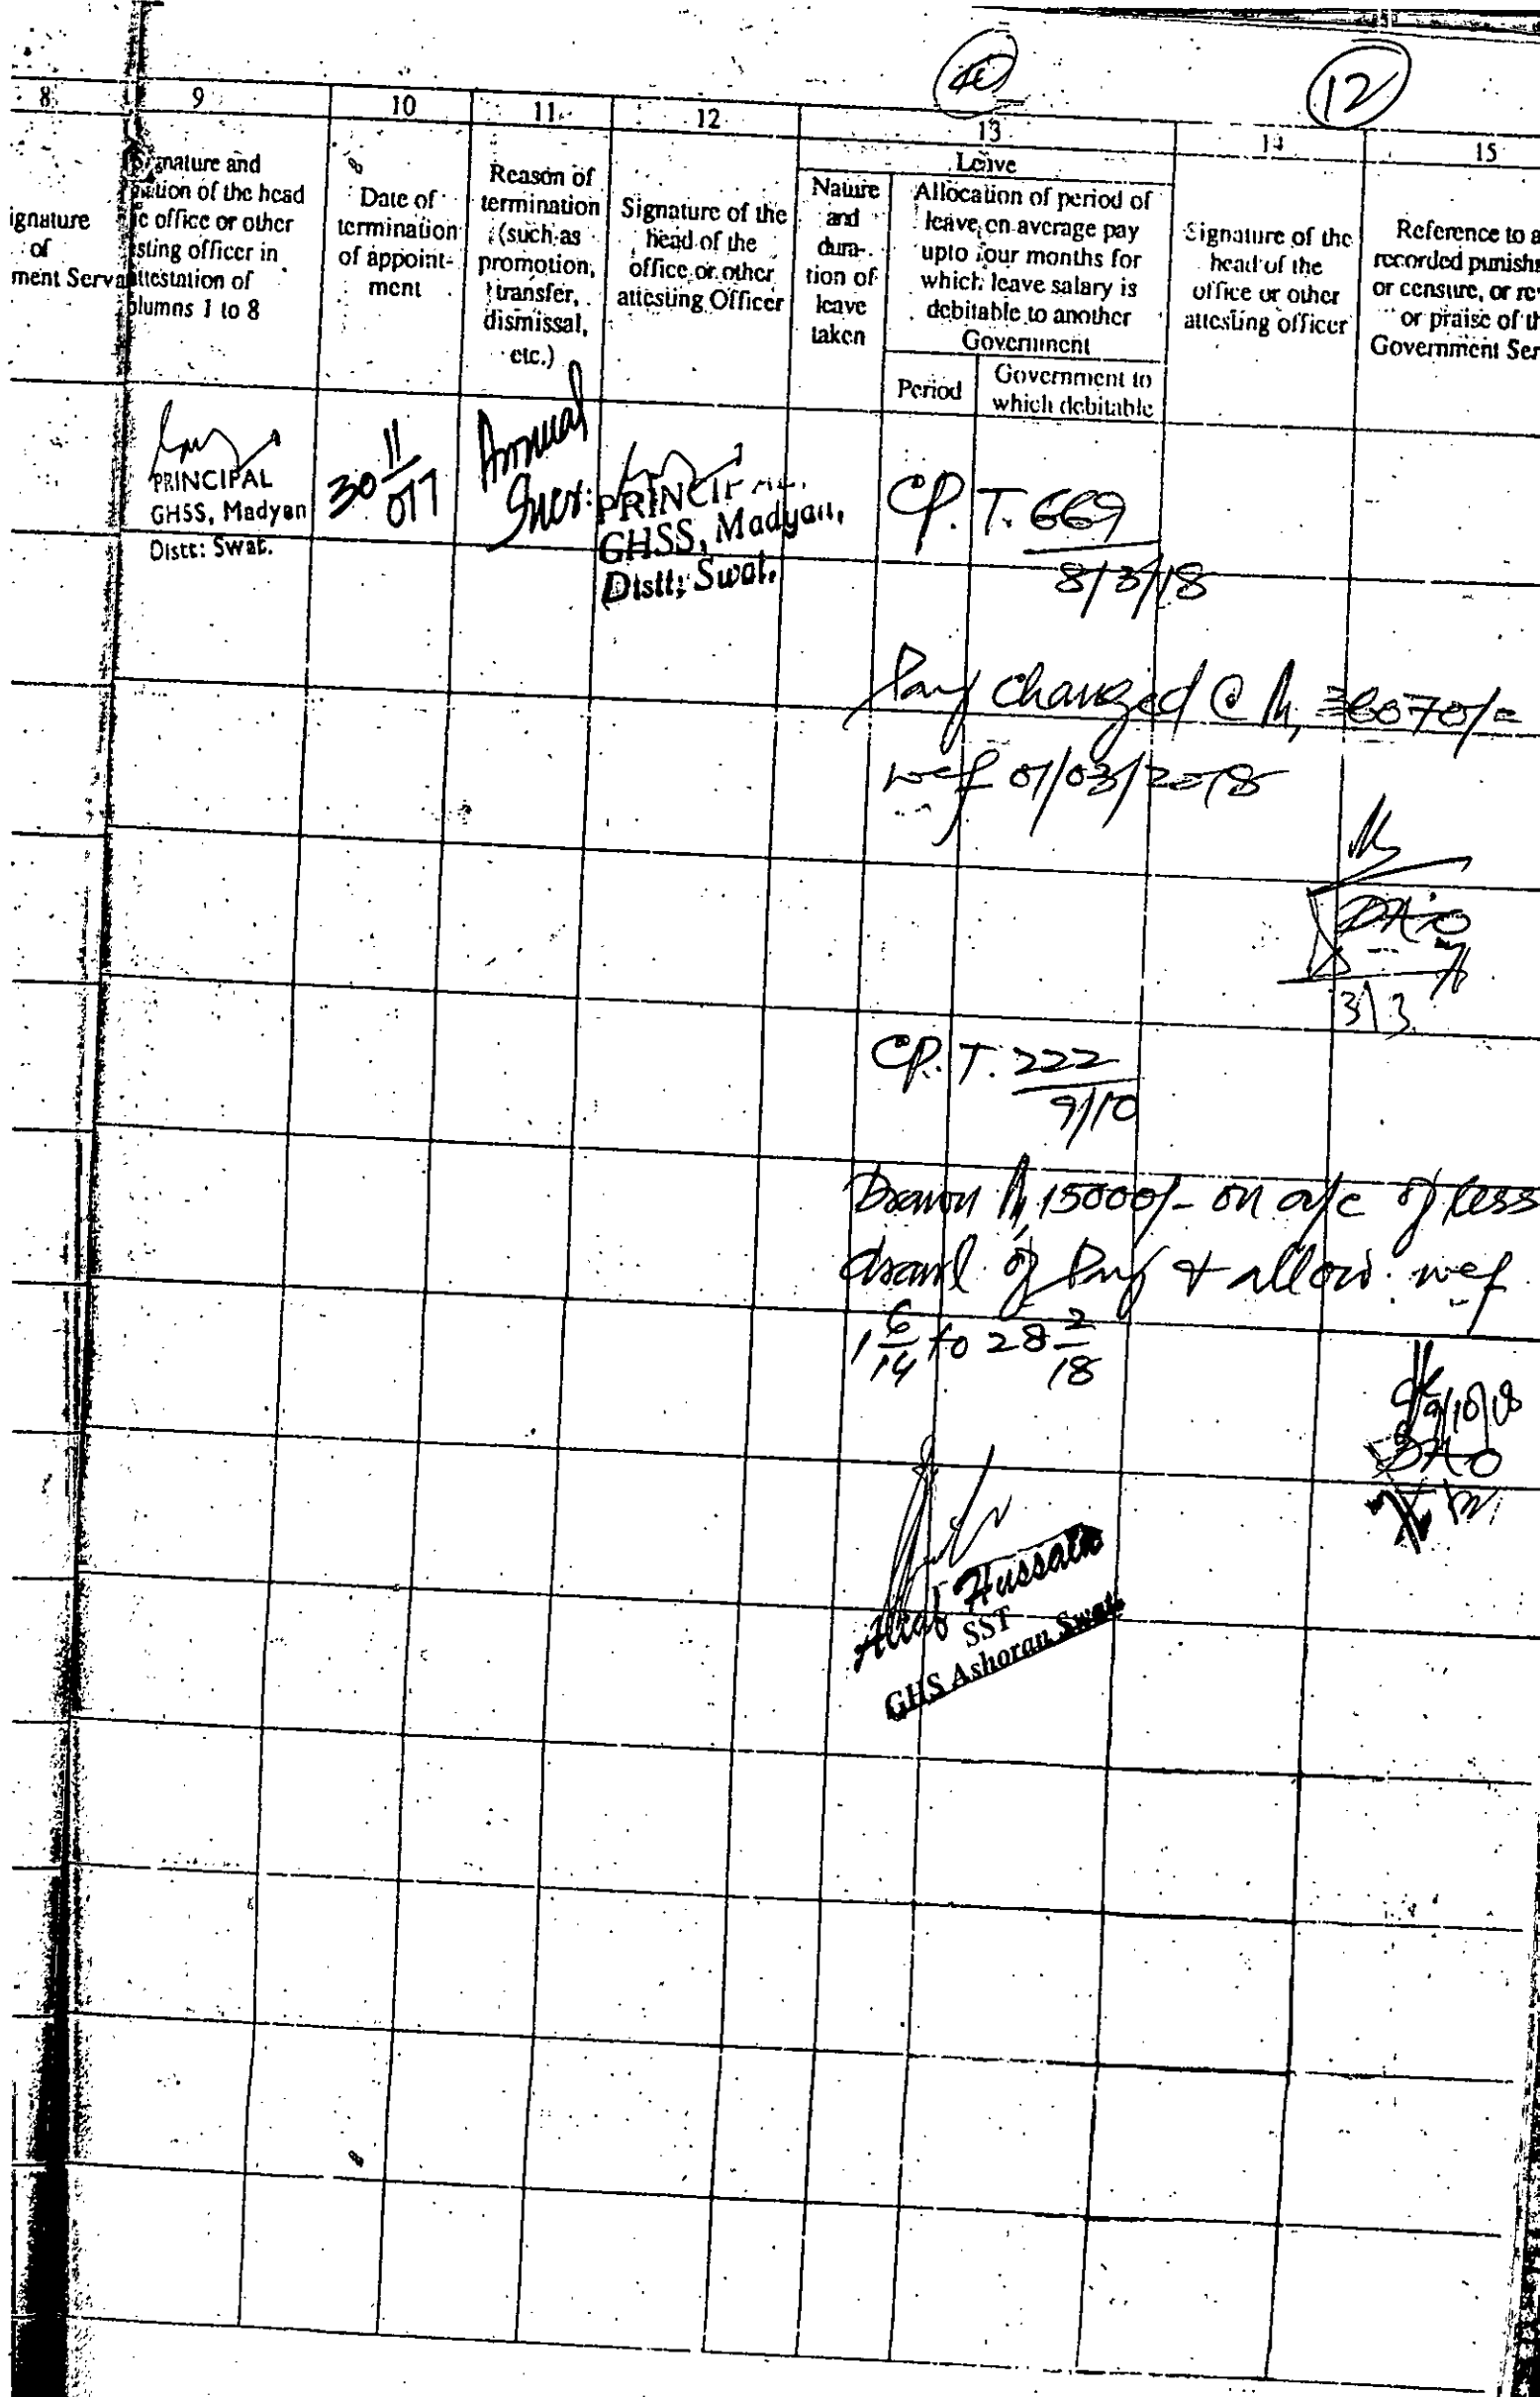 12
8 9 10 11 12 13 14 15
ignature
of
ment Serva
nature and
tion of the head
office or other
sting officer in
ttestation of
olumns 1 to 8
Date of
termination
of appoint-
ment
Reason of
termination
(such as
promotion,
transfer,
dismissal,
etc.)
Signature of the
head of the
office or other
attesting Officer
Leave
Nature
and
dura-
tion of
leave
taken
Allocation of period of
leave on average pay
upto four months for
which leave salary is
debitable to another
Government
Period
Government to
which debitable
Signature of the
head of the
office or other
attesting officer
Reference to a
recorded punish
or censure, or re
or praise of th
Government Ser
PRINCIPAL
GHSS, Madyan
Distt: Swat.
30 11/017
Annual
Incr:
PRINCIPAL
GHSS, Madyan,
Distt; Swat.
CP. T. 669
8/3/18
Pay changed @ Rs, 38070/=
wef 01/03/2018
DAO
313
CP. T. 222
9/10
Drawn Rs, 15000/- on a/c of less
drawl of Pay & allow: wef
1 6/14 to 28 2/18
9/10/18
DAO
Altaf Hussain
SST
GHS Ashoran Swat